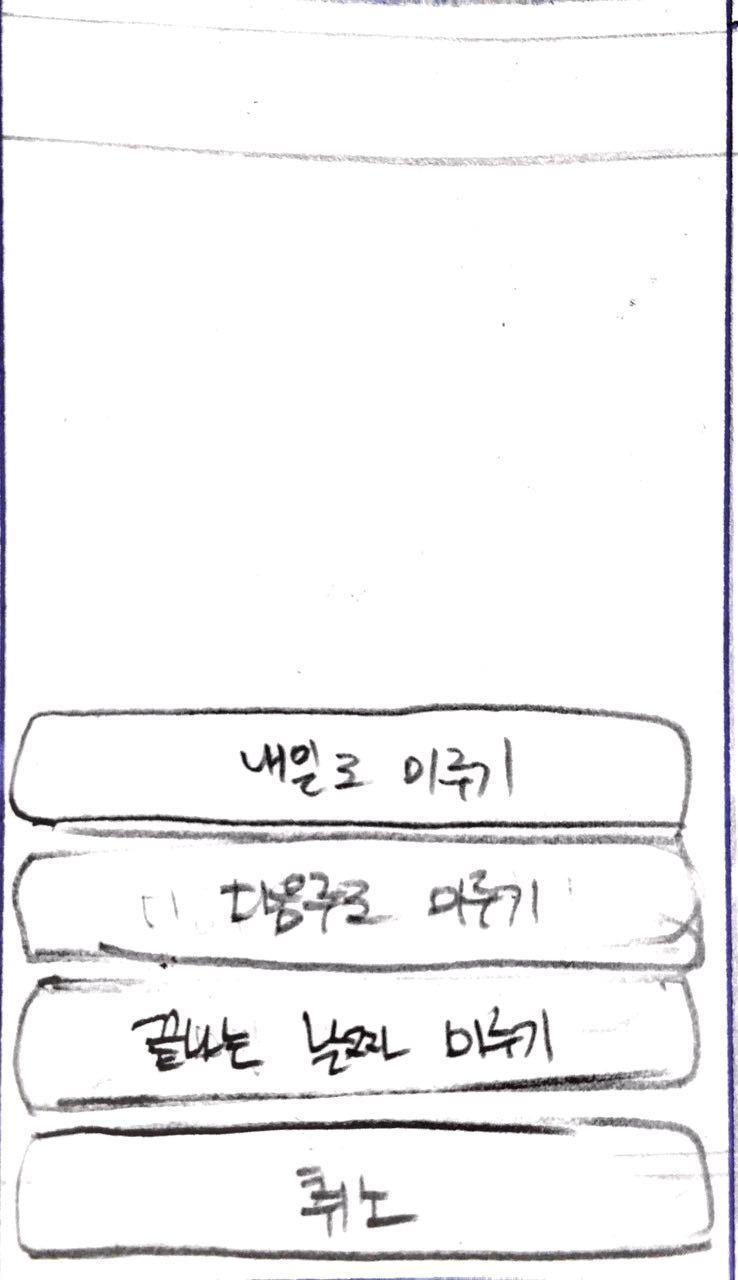 내일로 미루기
다음주로 미루기
끝나는 날짜 미루기
취소